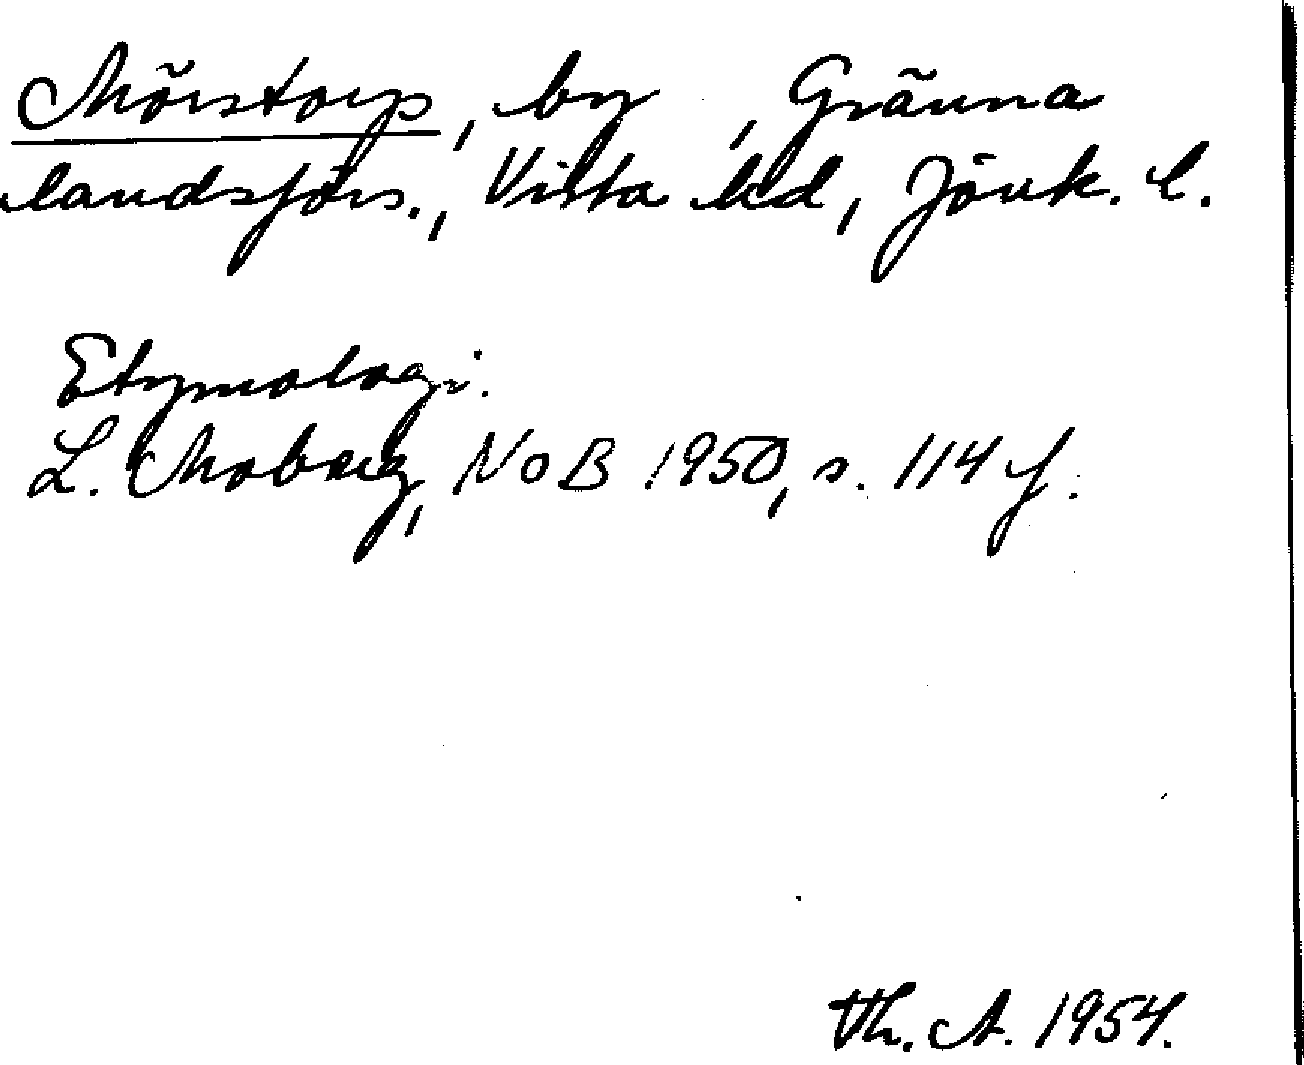 Mörstorp, by, Gränna
landsförs., Vista hd, Jönk. l.
Etymologi.
L. Moberg, NoB 1950, s. 114 f.
Th. A. 1954.